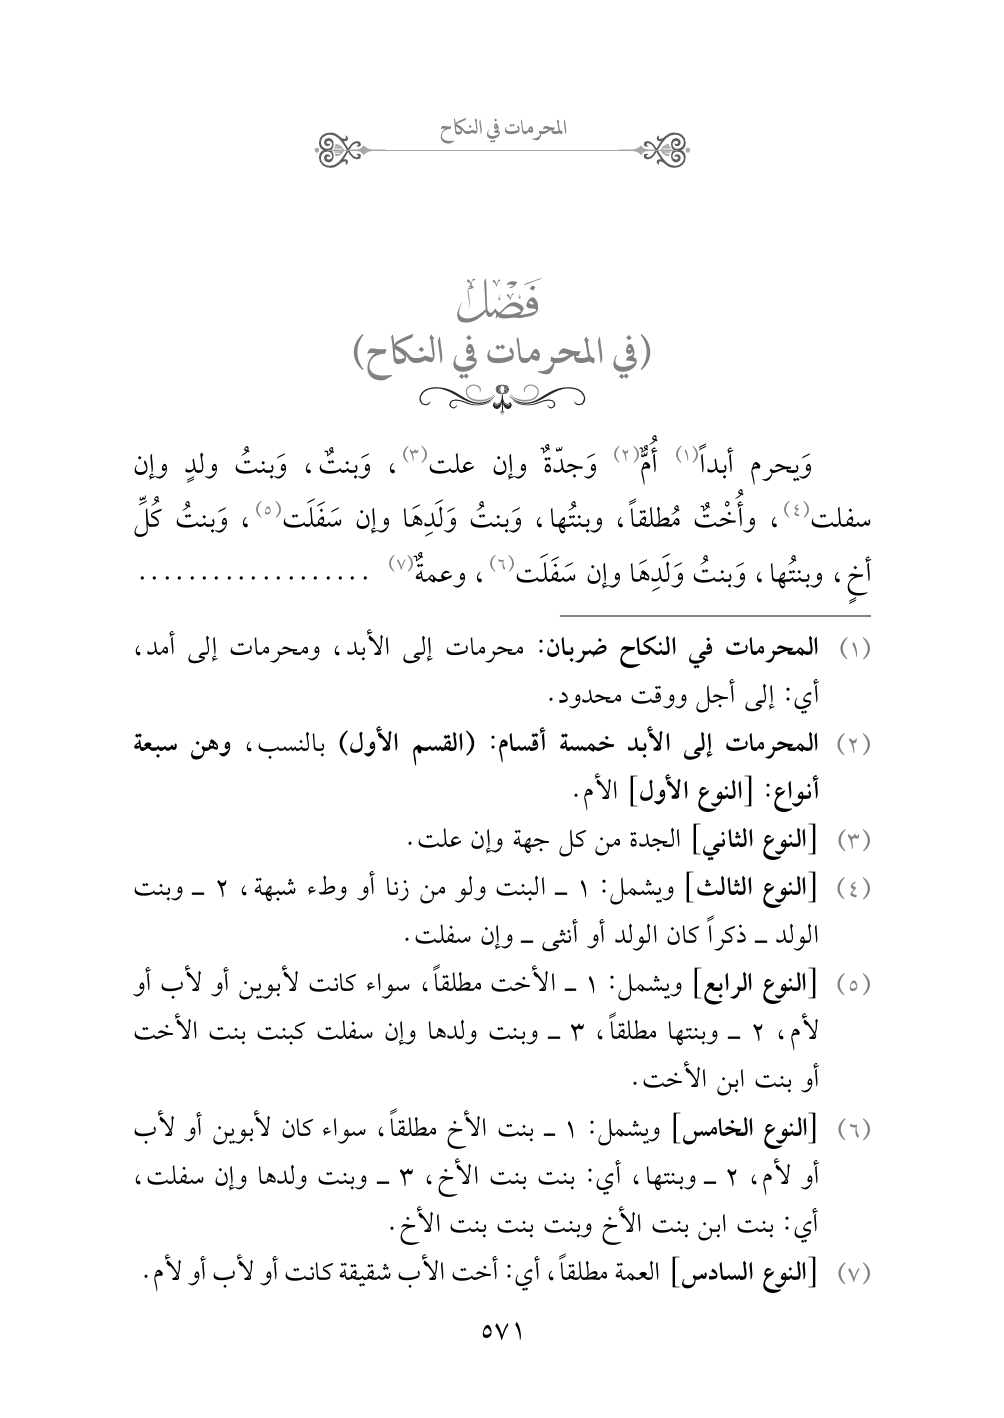 المحرمات في النكاح
فَصْلٌ
(في المحرمات في النكاح)
وَيحرم أبداً(١) أُمٌّ(٢) وَجدّةٌ وإن علت(٣)، وَبنتٌ، وَبنتُ ولدٍ وإن
سفلت(٤)، وأُخْتٌ مُطلقاً، وبنتُها، وَبنتُ وَلَدِهَا وإن سَفَلَت(٥)، وَبنتُ كُلِّ
أخٍ، وبنتُها، وَبنتُ وَلَدِهَا وإن سَفَلَت(٦)، وعمةٌ(٧) ...................
(١) المحرمات في النكاح ضربان: محرمات إلى الأبد، ومحرمات إلى أمد،
أي: إلى أجل ووقت محدود.
(٢) المحرمات إلى الأبد خمسة أقسام: (القسم الأول) بالنسب، وهن سبعة
أنواع: [النوع الأول] الأم.
(٣) [النوع الثاني] الجدة من كل جهة وإن علت.
(٤) [النوع الثالث] ويشمل: ١ ـ البنت ولو من زنا أو وطء شبهة، ٢ ـ وبنت
الولد ـ ذكراً كان الولد أو أنثى ـ وإن سفلت.
(٥) [النوع الرابع] ويشمل: ١ ـ الأخت مطلقاً، سواء كانت لأبوين أو لأب أو
لأم، ٢ ـ وبنتها مطلقاً، ٣ ـ وبنت ولدها وإن سفلت كبنت بنت الأخت
أو بنت ابن الأخت.
(٦) [النوع الخامس] ويشمل: ١ ـ بنت الأخ مطلقاً، سواء كان لأبوين أو لأب
أو لأم، ٢ ـ وبنتها، أي: بنت بنت الأخ، ٣ ـ وبنت ولدها وإن سفلت،
أي: بنت ابن بنت الأخ وبنت بنت بنت الأخ.
(٧) [النوع السادس] العمة مطلقاً، أي: أخت الأب شقيقة كانت أو لأب أو لأم.
٥٧١